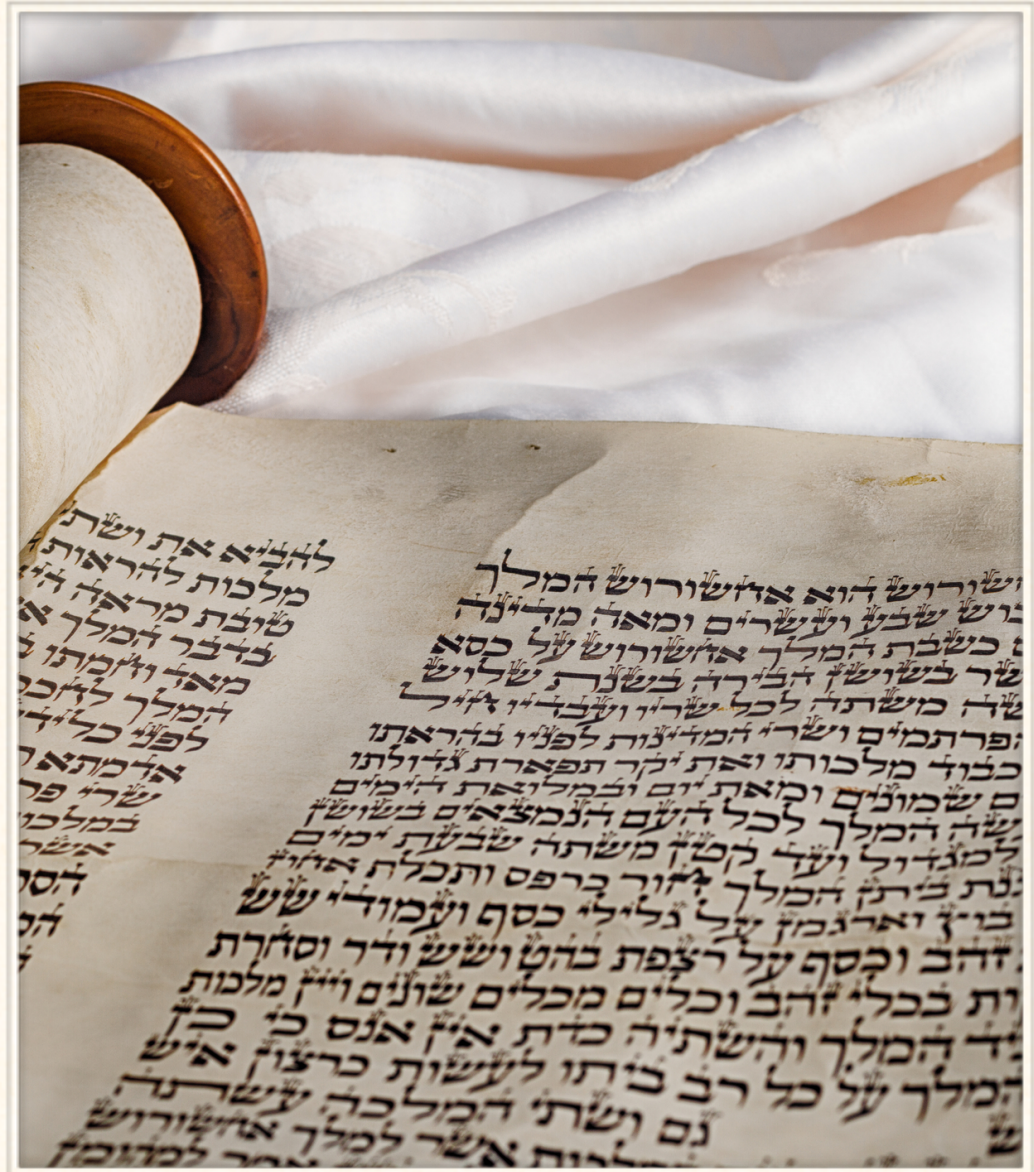 הוא אחשורוש המלך
כוש שבע ועשרים ומאה מדינה
כשבת המלך אחשורוש על כסא
בשושן הבירה בשנת שלוש
משתה לכל שריו ועבדיו חיל
הפרתמים ושרי המדינות לפניו בהראתו
כבוד מלכותו ואת יקר תפארת גדולתו
שמונים ומאת יום ובמלואת הימים
המלך לכל העם הנמצאים בשושן
למגדול ועד קטן משתה שבעת ימים
ביתן המלך חור כרפס ותכלת אחוז
בוץ וארגמן על גלילי כסף ועמודי שש
זהב וכסף על רצפת בהט ושש ודר וסחרת
בכלי זהב וכלים מכלים שונים ויין מלכות
המלך והשתיה כדת אין אנס כי כן
המלך על כל רב ביתו לעשות כרצון איש
גם ושתי המלכה עשתה
אשר למלך אחשורוש
אמר למהומן
להביא את ושתי
מלכות להראות
טובת מראה
בדבר המלך
מאד וחמתו
המלך
לפני כל
אדמתא
שרי
אשר